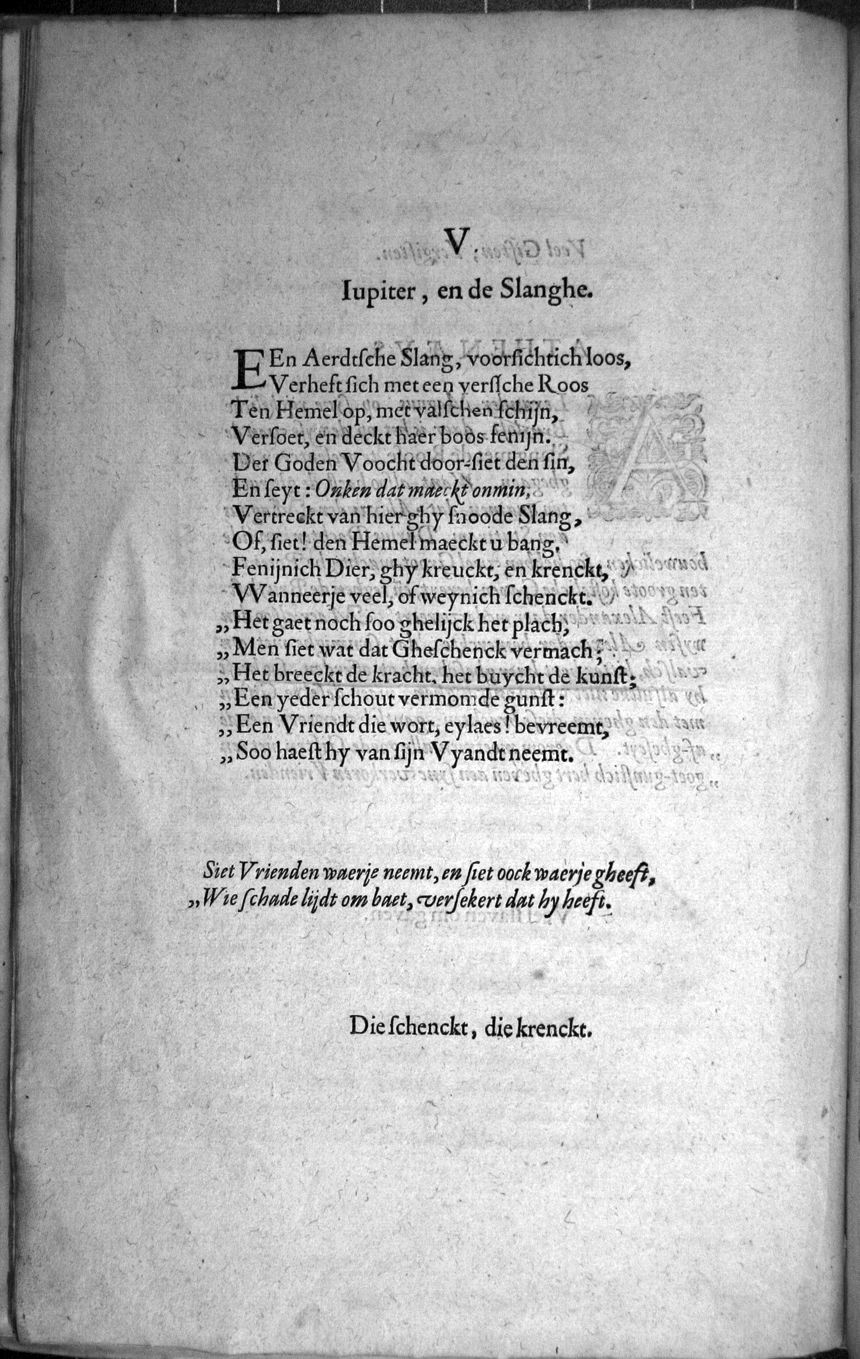 V.
Iupiter, en de Slanghe.
EEn Aerdtſche Slang, voorſichtich loos,
Verheft ſich met een verſſche Roos
Ten Hemel op, met valſchen ſchijn,
Verſoet, en deckt haer boos fenijn.
Der Goden Voocht door-ſiet den ſin,
En ſeyt: Onken dat maeckt onmin,
Vertreckt van hier ghy ſnoode Slang,
Of, ſiet! den Hemel maeckt u bang.
Fenijnich Dier, ghy kreuckt, en krenckt,
Wanneerje veel, of weynich ſchenckt.
„Het gaet noch ſoo ghelijck het plach,
„Men ſiet wat dat Gheſchenck vermach;
„Het breeckt de kracht, het buycht de kunſt;
„Een yeder ſchout vermomde gunſt:
„Een Vriendt die wort, eylaes! bevreemt,
„Soo haeſt hy van ſijn Vyandt neemt.
Siet Vrienden waerje neemt, en ſiet oock waerje gheeft,
„Wie ſchade lijdt om baet, verſekert dat hy heeft.
Die ſchenckt, die krenckt.